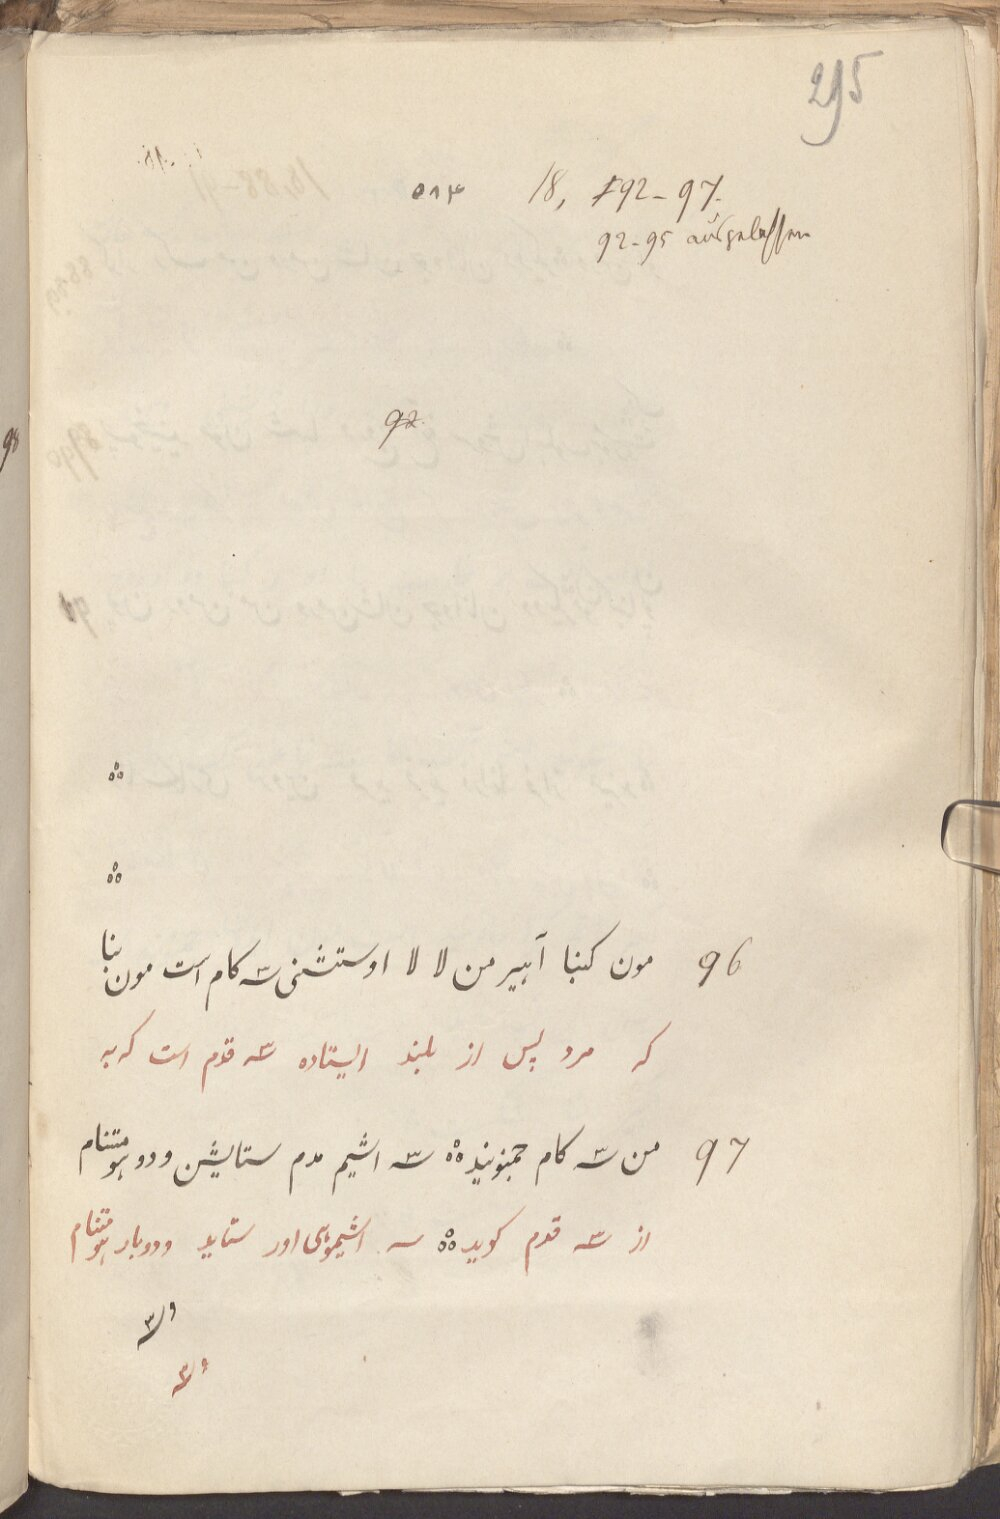 295
۵۸۴ 18, 92-97.
92-95 ausgelassen
92
ஃ
ஃ
96 مون کنبا آبیر من لا لا اوستشنی سه کام است مون بنا
که مرد پس از بلند ایستاده سه قدم است که به
97 من سه کام جمنونید ஃ سه اشیم مدم ستایشن و دو هومتنام
از سه قدم کوید ஃ سه اشیموهی اور ستاید و دوبار هومتنام
و سه
و سه